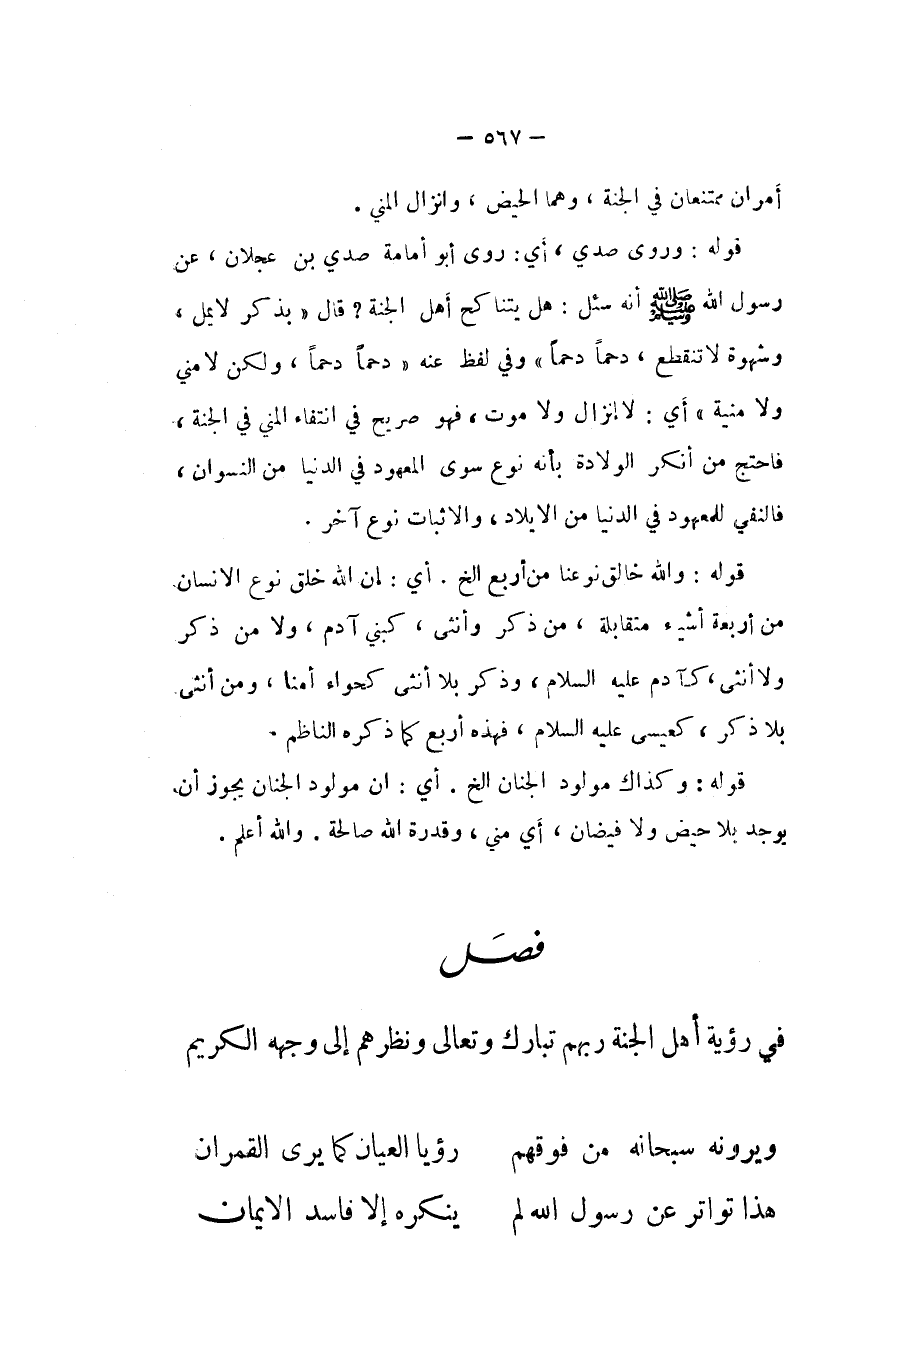 — ٥٦٧ —
أمران ممتنعان في الجنة ، وهما الحيض ، وانزال المني .
قوله : وروى صدي ، أي : روى أبو أمامة صدي بن عجلان ، عن
رسول الله ﷺ أنه سئل : هل يتناكح أهل الجنة ؟ قال « بذكر لايمل ،
وشهوة لاتنقطع ، دحماً دحماً » وفي لفظ عنه « دحماً دحماً ، ولكن لامني
ولا منية » أي : لاإنزال ولا موت ، فهو صريح في انتفاء المني في الجنة ،
فاحتج من أنكر الولادة بأنه نوع سوى المعهود في الدنيا من النسوان ،
فالنفي للمعهود في الدنيا من الايلاد ، والاثبات نوع آخر .
قوله : والله خالق نوعنا من أربع الخ . أي : إن الله خلق نوع الانسان
من أربعة أشياء متقابلة ، من ذكر وأنثى ، كبني آدم ، ولا من ذكر
ولا أنثى ، كآدم عليه السلام ، وذكر بلا أنثى كحواء أمنا ، ومن أنثى
بلا ذكر ، كعيسى عليه السلام ، فهذه أربع كما ذكره الناظم .
قوله : وكذاك مولود الجنان الخ . أي : ان مولود الجنان يجوز أن
يوجد بلا حيض ولا فيضان ، أي مني ، وقدرة الله صالحة . والله أعلم .
فصَل
في رؤية أهل الجنة ربهم تبارك وتعالى ونظرهم إلى وجهه الكريم
ويرونه سبحانه من فوقهم رؤيا العيان كما يرى القمران
هذا تواتر عن رسول الله لم ينكره إلا فاسد الايمان